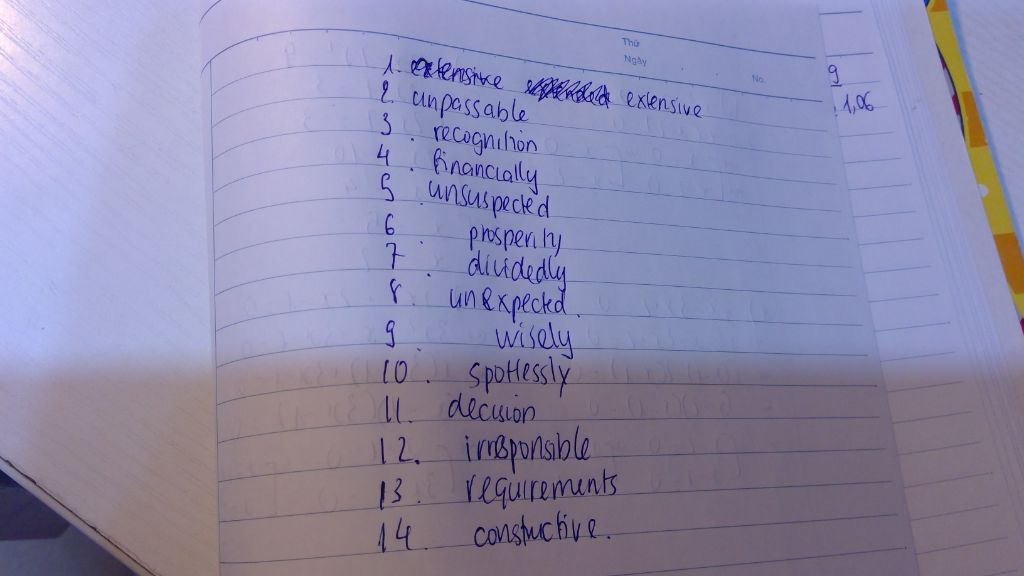 Thứ
Ngày
No.
1. extensive extensive
2. unpassable
3. recognition
4. financially
5. unsuspected
6. prosperity
7. dividedly
8. unexpected.
9. wisely
10. spotlessly
11. decision
12. irresponsible
13. requirements
14. constuctive.
9
1,06